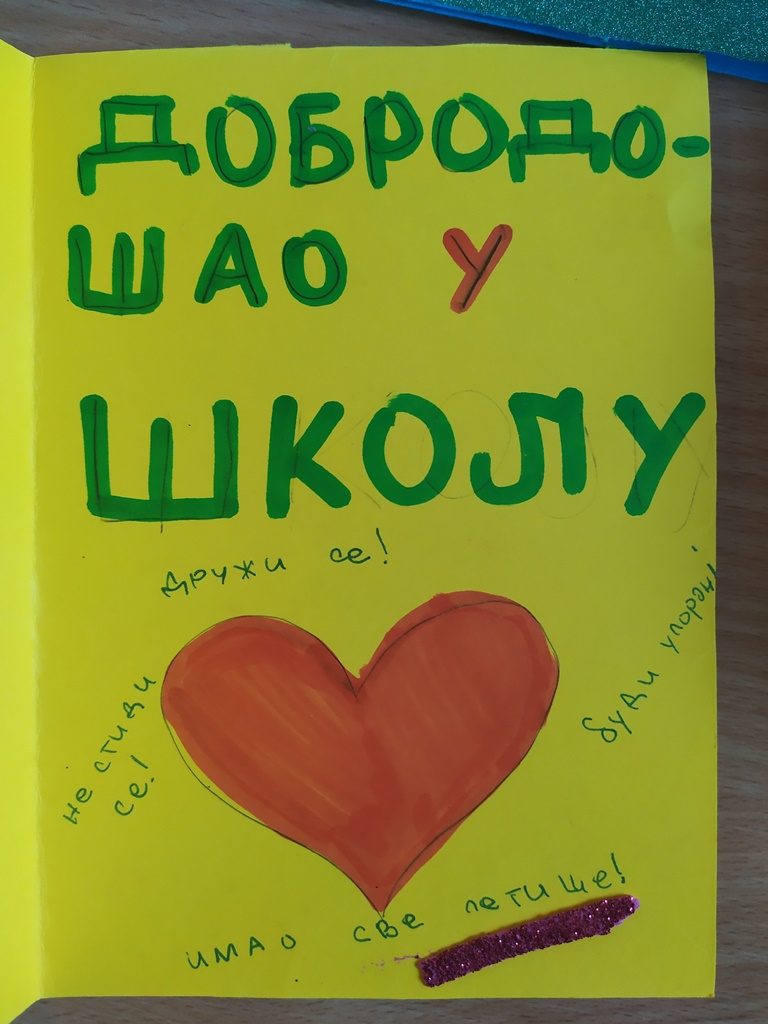 ДОБРОДО-
ШАО У
ШКОЛУ
дружи се!
буди упоран!
не стиди
се!
имао све петице!